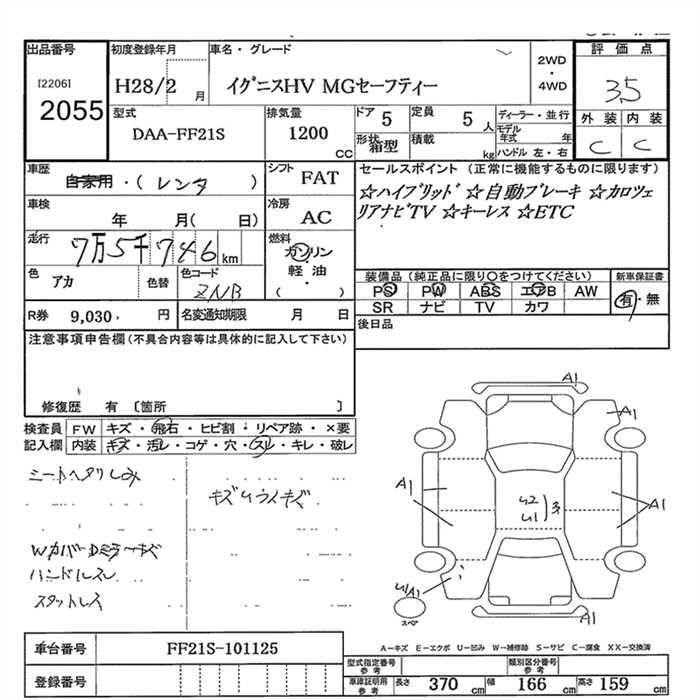 出品番号 初度登録年月 車名・グレード 2WD・4WD 評価点
[2206] 2055 H28/2月 イグニスHV MGセーフティー 3.5
型式 排気量 ドア 5 定員 5人 ディーラー・並行 外装 内装
DAA-FF21S 1200 CC 形状 箱型 積載 kg モデル年式 年 C C
ハンドル 左・右
車歴 自家用・(レンタ) シフト FAT セールスポイント (正常に機能するものに限ります)
車検 年 月( 日) 冷房 AC ☆ハイブリッド ☆自動ブレーキ ☆カロツェ
リアナビTV ☆キーレス ☆ETC
走行 7万5千746km 燃料 ガソリン 軽・油 ( )
色 アカ 色替 色コード ZNB 装備品 (純正品に限り○をつけてください) 新車保証書
PS PW ABS エアB AW 有・無
R券 9,030 円 名変通知期限 月 日 SR ナビ TV カワ
注意事項申告欄(不具合内容等は具体的に記入して下さい) 後日品
修復歴 有 〔箇所 〕
検査員 FW キズ・飛石・ヒビ割・リペア跡・×要
記入欄 内装 キズ・汚レ・コゲ・穴・スレ・キレ・破レ
シートヘタリしみ
ハンドルスレ
A1
A1
A1
A1
U2
U1
A1
スペア
A1
A−キズ E−エクボ U−凹み W−補修跡 S−サビ C−腐食 XX−交換済
車台番号 FF21S-101125
型式指定番号 参考 類別区分番号 参考
登録番号 車庫証明用 参考 長さ 370 cm 幅 166 cm 高さ 159 cm